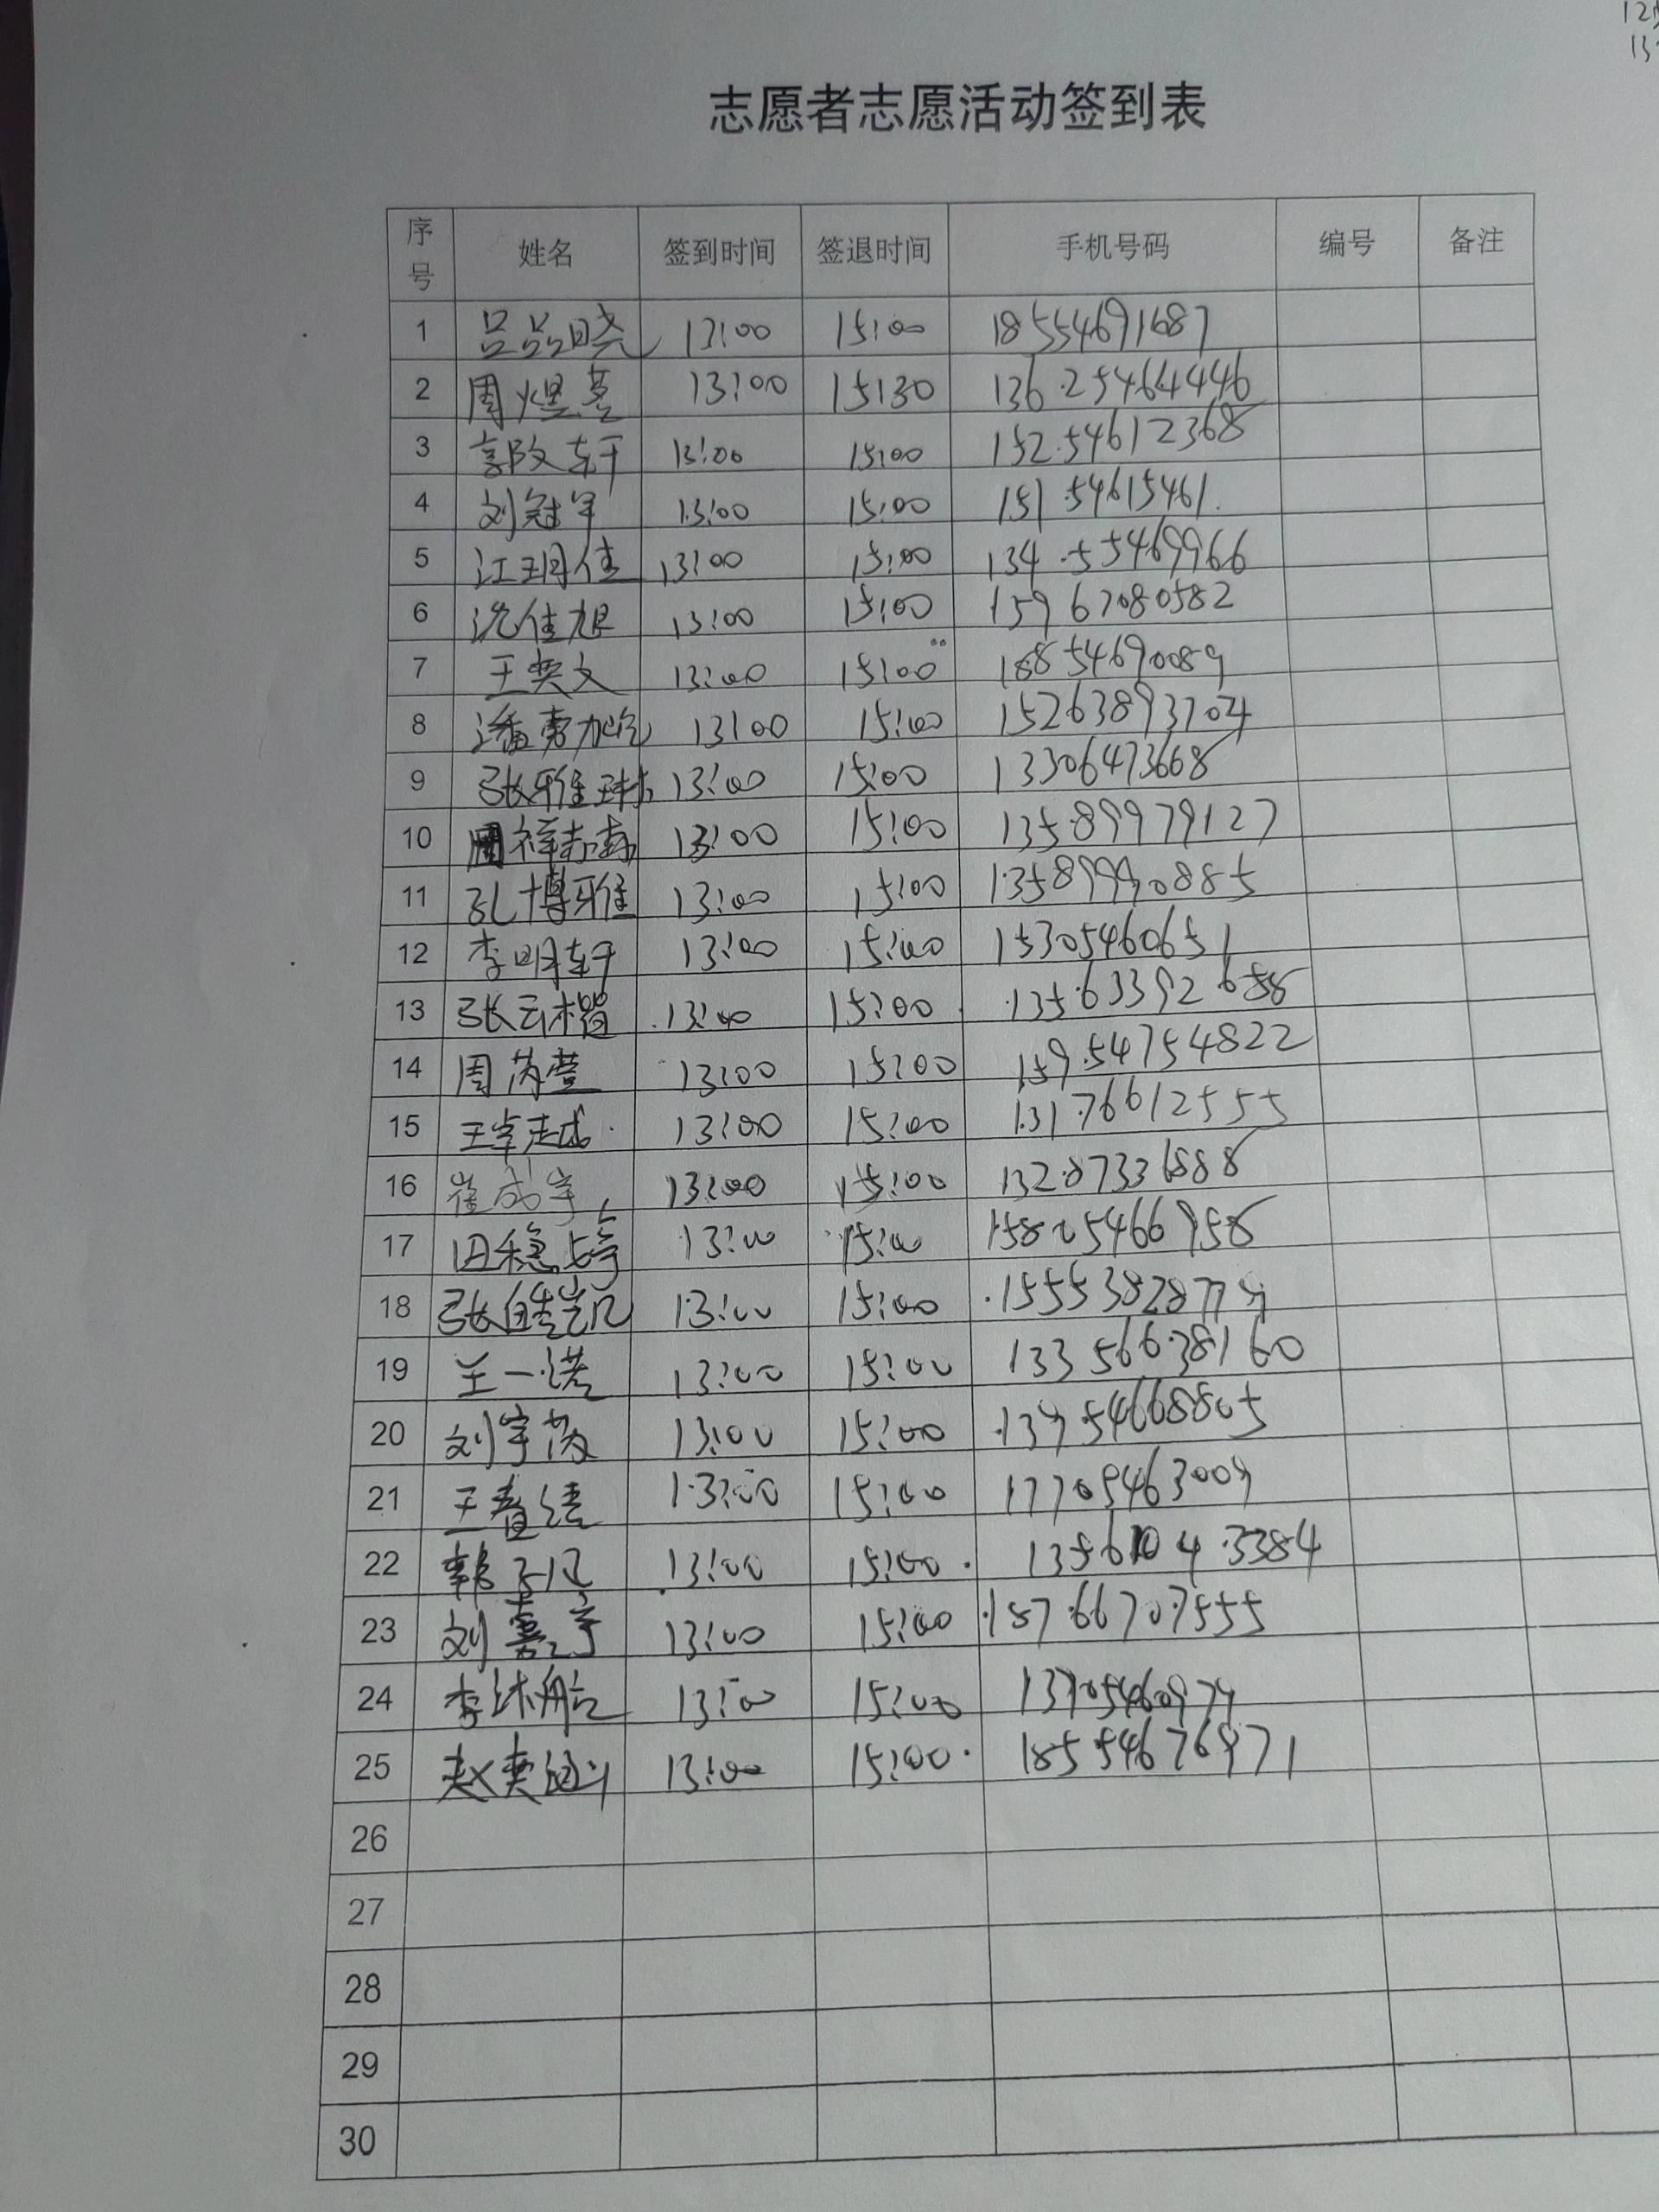 志愿者志愿活动签到表
序号 姓名 签到时间 签退时间 手机号码 编号 备注
1 吕品晓 13:00 15:00 18554691687
2 周煜茗 13:00 15:30 13625464446
3 郭政轩 13:00 15:00 15254612368
4 刘冠军 13:00 15:00 15154615461
5 江玥佳 13:00 15:00 13455469966
6 沈佳旭 13:00 15:00 15967080582
7 王奕文 13:00 15:00 18854690089
8 潘嘉加 13:00 15:00 15263893704
9 张雅琳 13:00 15:00 13306473668
10 周祥 13:00 15:00 13589979127
11 孔博雅 13:00 15:00 13589990885
12 李明轩 13:00 15:00 15305460651
13 张云楷 13:00 15:00 13563392658
14 周芮萱 13:00 15:00 15954754822
15 王卓越 13:00 15:00 13176612555
16 崔成宇 13:00 15:00 13287336888
17 田稳 13:00 15:00 15805466958
18 张皓岩 13:00 15:00
19 王一诺 13:00 15:00 13356638160
20 刘宇 13:00 15:00 13954668805
21 王春 13:00 15:00 17705463009
22 韩 13:00 15:00 13561043384
23 刘嘉宇 13:00 15:00 18766707555
24 李沐航 13:00 15:00
25 赵奕涵 13:00 15:00 18554676971
26
27
28
29
30